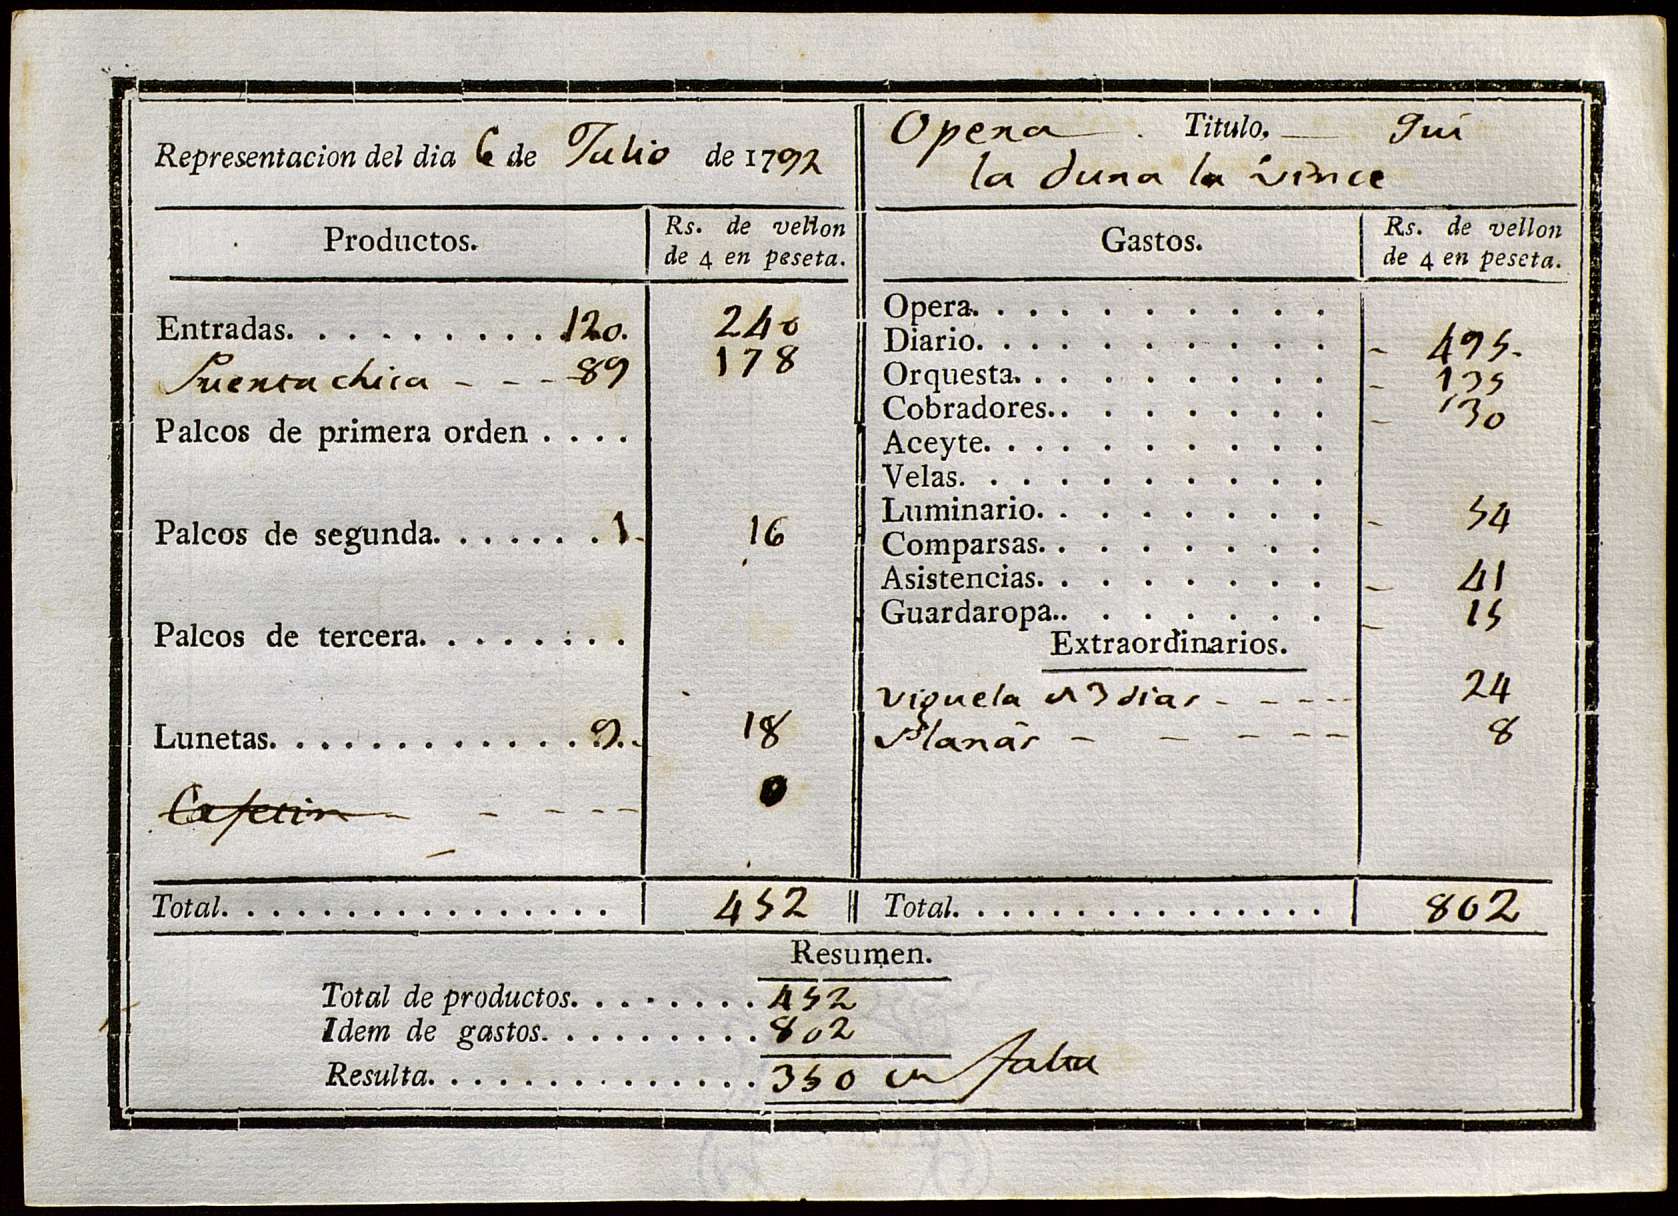 Representacion del dia 6 de Julio de 1792
Opera. Titulo. qui
la dura la vince
Productos. Rs. de vellon
de 4 en peseta.
Gastos. Rs. de vellon
de 4 en peseta.
Entradas. 120. 240
Puerta chica 89 178
Palcos de primera orden
Palcos de segunda. 1 16
Palcos de tercera.
Lunetas. 9. 18
Cafetin 0
Total. 452
Opera.
Diario. 495.
Orquesta. 135
Cobradores. 30
Aceyte.
Velas.
Luminario. 54
Comparsas.
Asistencias. 41
Guardaropa. 15
Extraordinarios.
viguela de 3 dias 24
Planas 8
Total. 802
Resumen.
Total de productos. 452
Idem de gastos. 802
Resulta. 350 en falta